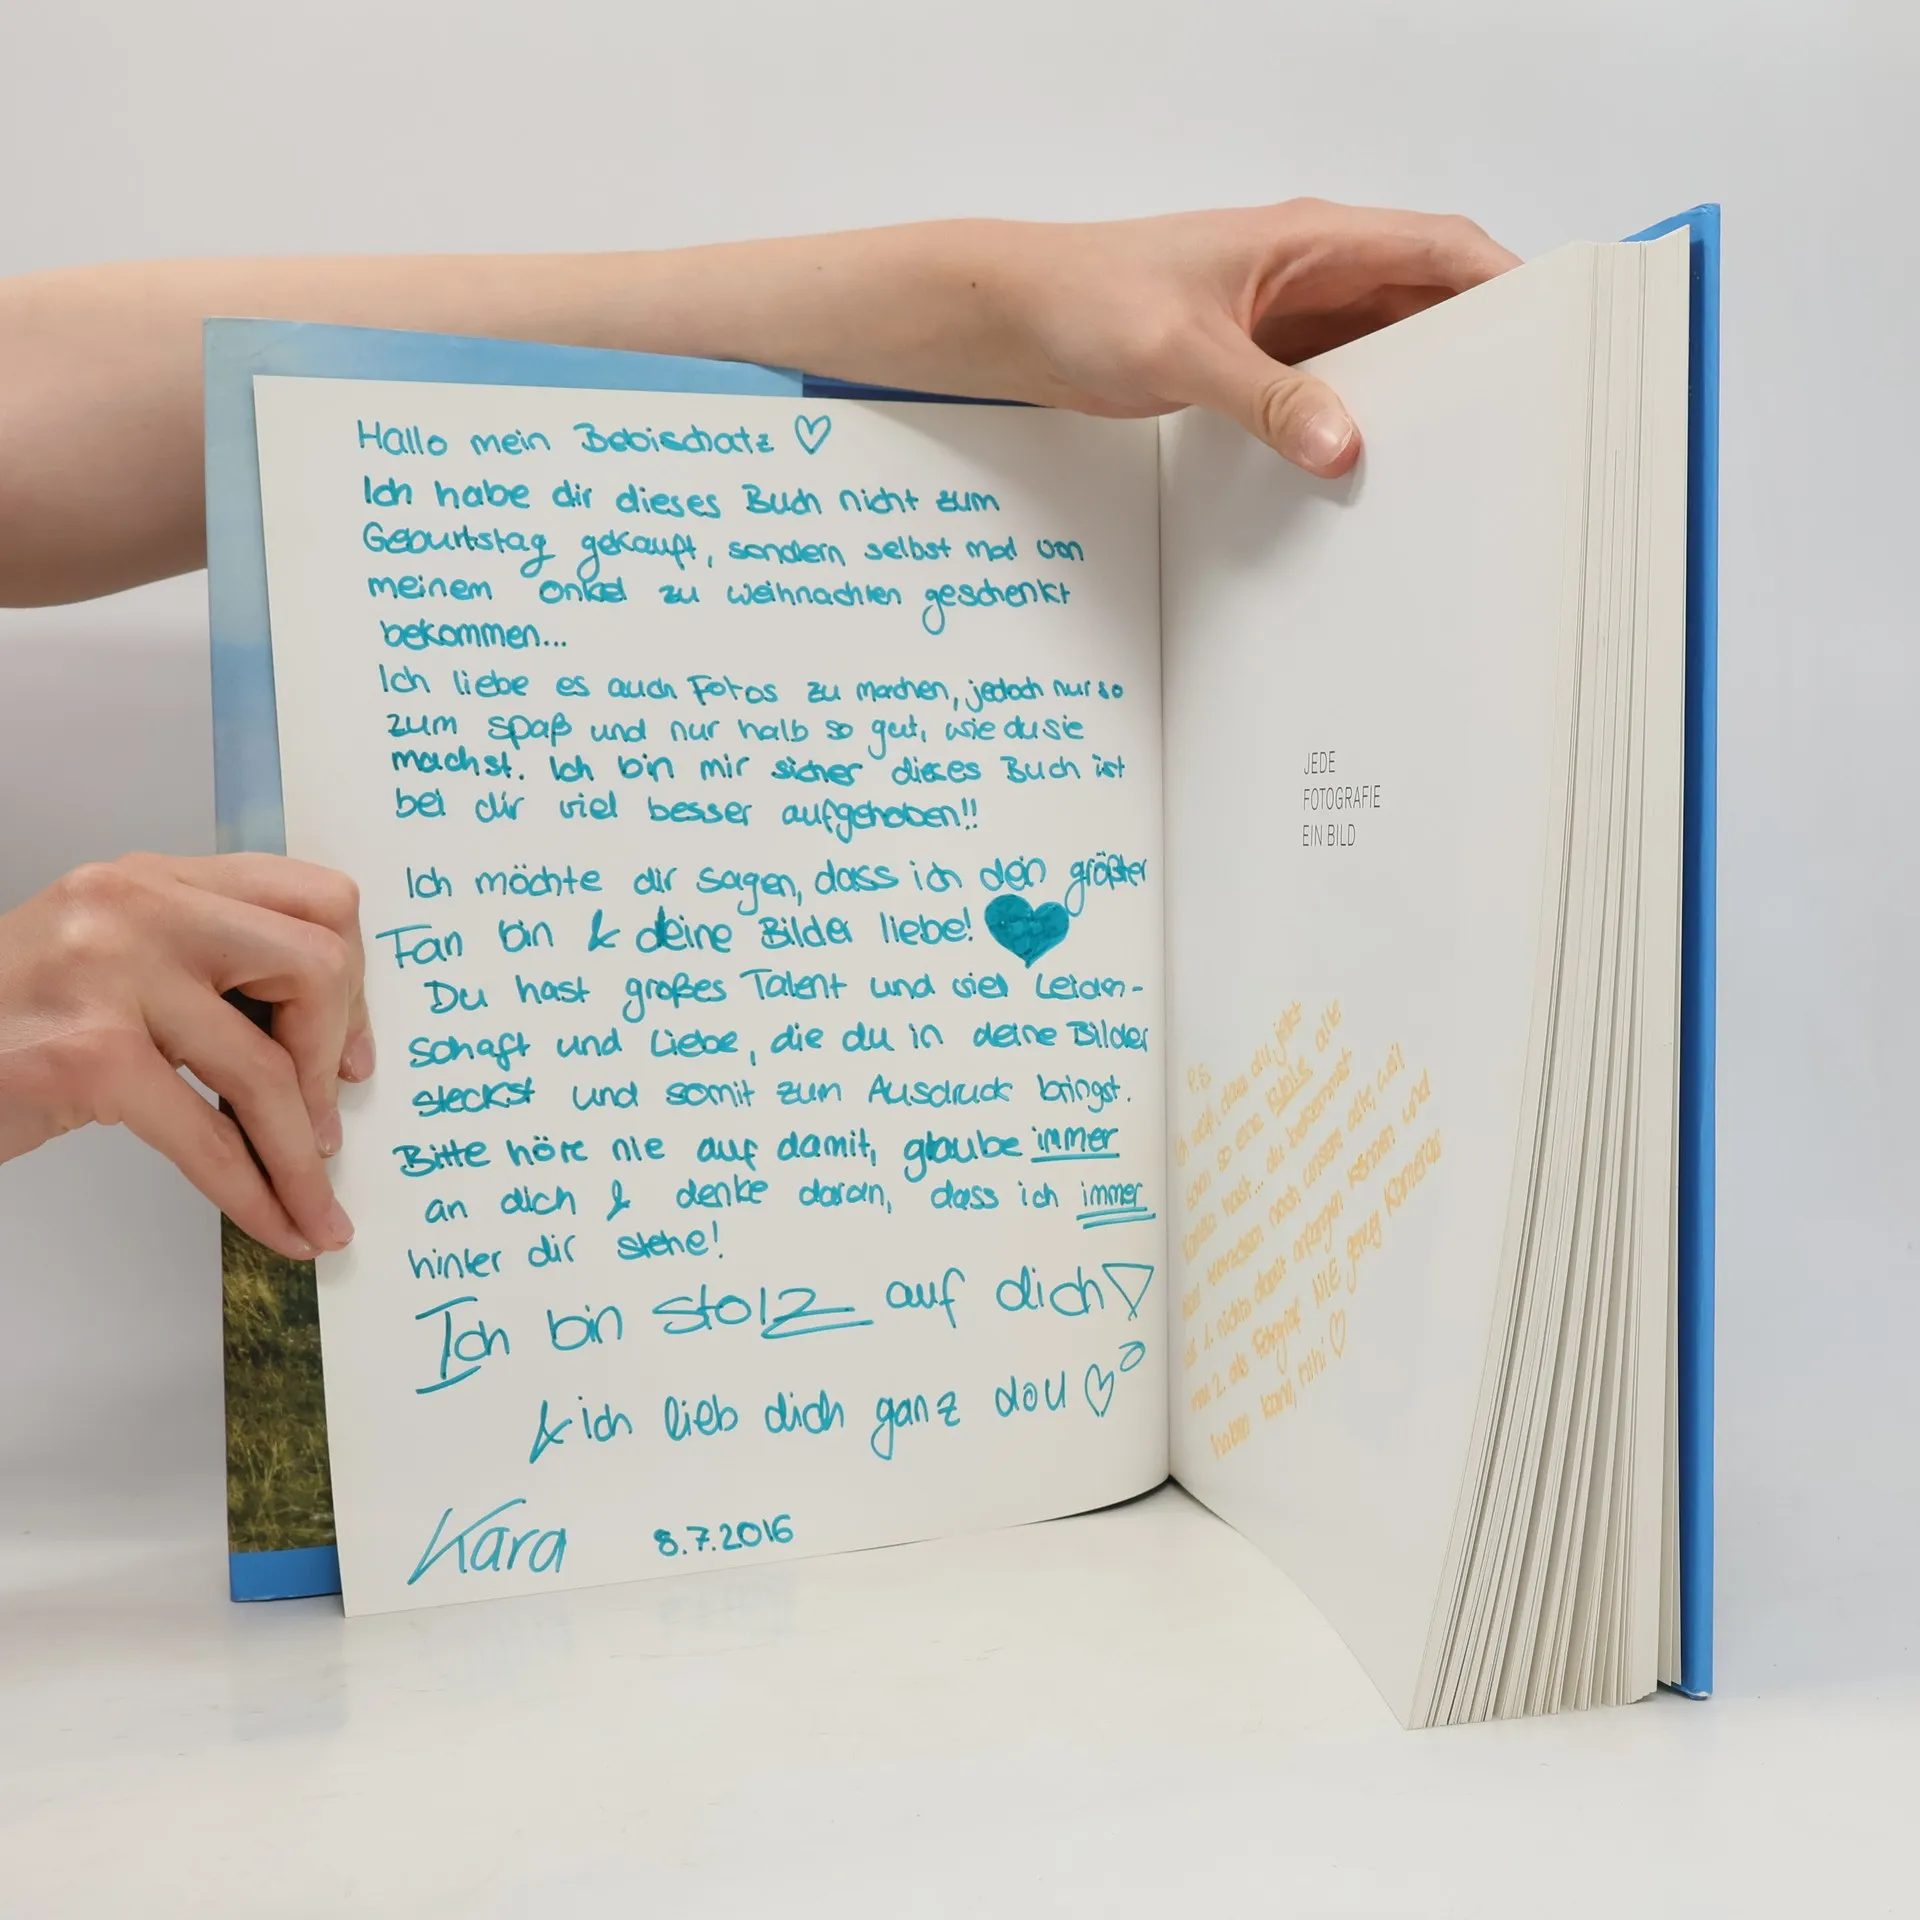 Hallo mein Bebischatz ♡
Ich habe dir dieses Buch nicht zum
Geburtstag gekauft, sondern selbst mal von
meinem Onkel zu Weihnachten geschenkt
bekommen...
Ich liebe es auch Fotos zu machen, jedoch nur so
zum Spaß und nur halb so gut, wie du sie
machst. Ich bin mir sicher dieses Buch ist
bei dir viel besser aufgehoben!!
Ich möchte dir sagen, dass ich dein größter
Fan bin & deine Bilder liebe! ♥
Du hast großes Talent und viel Leiden-
schaft und Liebe, die du in deine Bilder
steckst und somit zum Ausdruck bringst.
Bitte höre nie auf damit, glaube immer
an dich & denke daran, dass ich immer
hinter dir stehe!
Ich bin stolz auf dich!
& ich lieb dich ganz doll ♡
Kara 8.7.2016
JEDE
FOTOGRAFIE
EIN BILD
P.S
Ich weiß, dass du jetzt
schon so eine alte
Kamera hast... du bekommst
aber trotzdem noch unsere alte, weil
wir 1. nichts damit anfangen können und
man 2. als Fotograf NIE genug Kameras
haben kann, hihi ♡